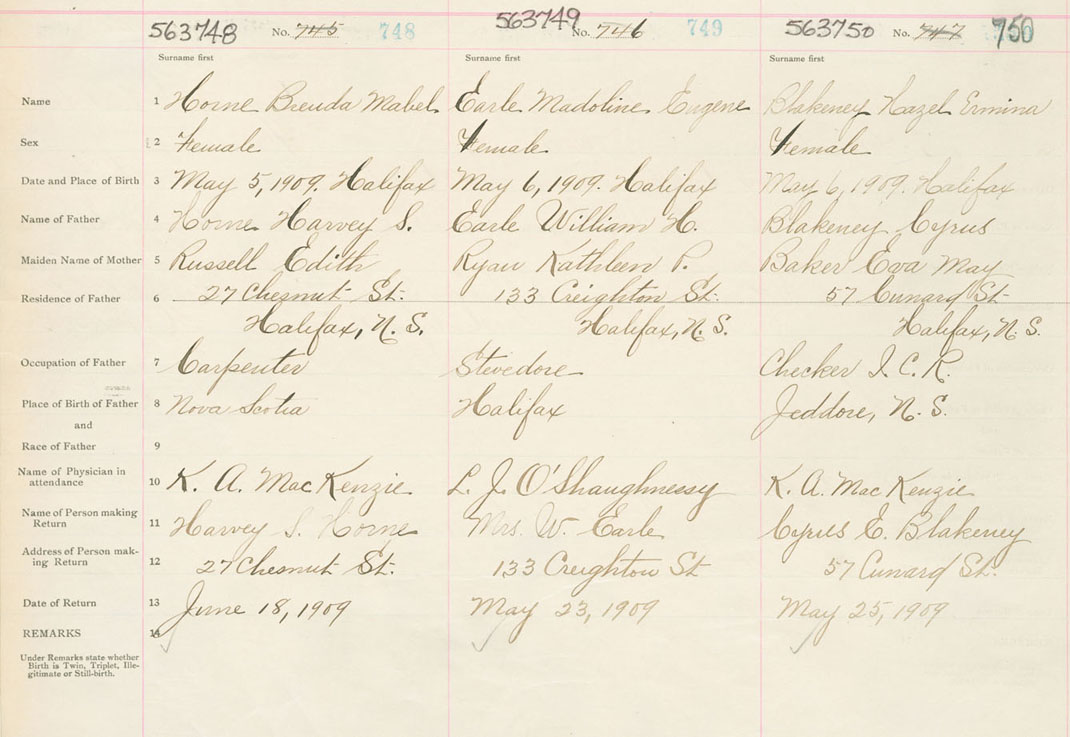 563748 No. 745 748 563749 No. 746 749 563750 No. 747 750
Surname first Surname first Surname first
Name 1 Horne Brenda Mabel Earle Madoline Eugene Blakeney Hazel Ermina
Sex 2 Female Female Female
Date and Place of Birth 3 May 5, 1909. Halifax May 6, 1909. Halifax May 6, 1909. Halifax
Name of Father 4 Horne Harvey S. Earle William H. Blakeney Cyrus
Maiden Name of Mother 5 Russell Edith Ryan Kathleen P. Baker Eva May
Residence of Father 6 27 Chesnut St. 133 Creighton St. 57 Cunard St
Halifax, N. S. Halifax, N. S. Halifax, N. S.
Occupation of Father 7 Carpenter Stevedore Checker I. C. R.
Place of Birth of Father 8 Nova Scotia Halifax Jeddore, N. S.
and
Race of Father 9
Name of Physician in
attendance 10 K. A. MacKenzie L. J. O'Shaughnessy K. A. MacKenzie
Name of Person making
Return 11 Harvey S. Horne Mrs. W. Earle Cyrus E. Blakeney
Address of Person mak-
ing Return 12 27 Chesnut St. 133 Creighton St 57 Cunard St.
Date of Return 13 June 18, 1909 May 23, 1909 May 25, 1909
REMARKS 14
Under Remarks state whether
Birth is Twin, Triplet, Ille-
gitimate or Still-birth.